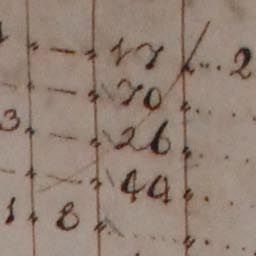 " — " 17 " .. 2
— " 70 " ....
3 " — " 26 " ....
— " 44 " ...
1 " 8 " ....